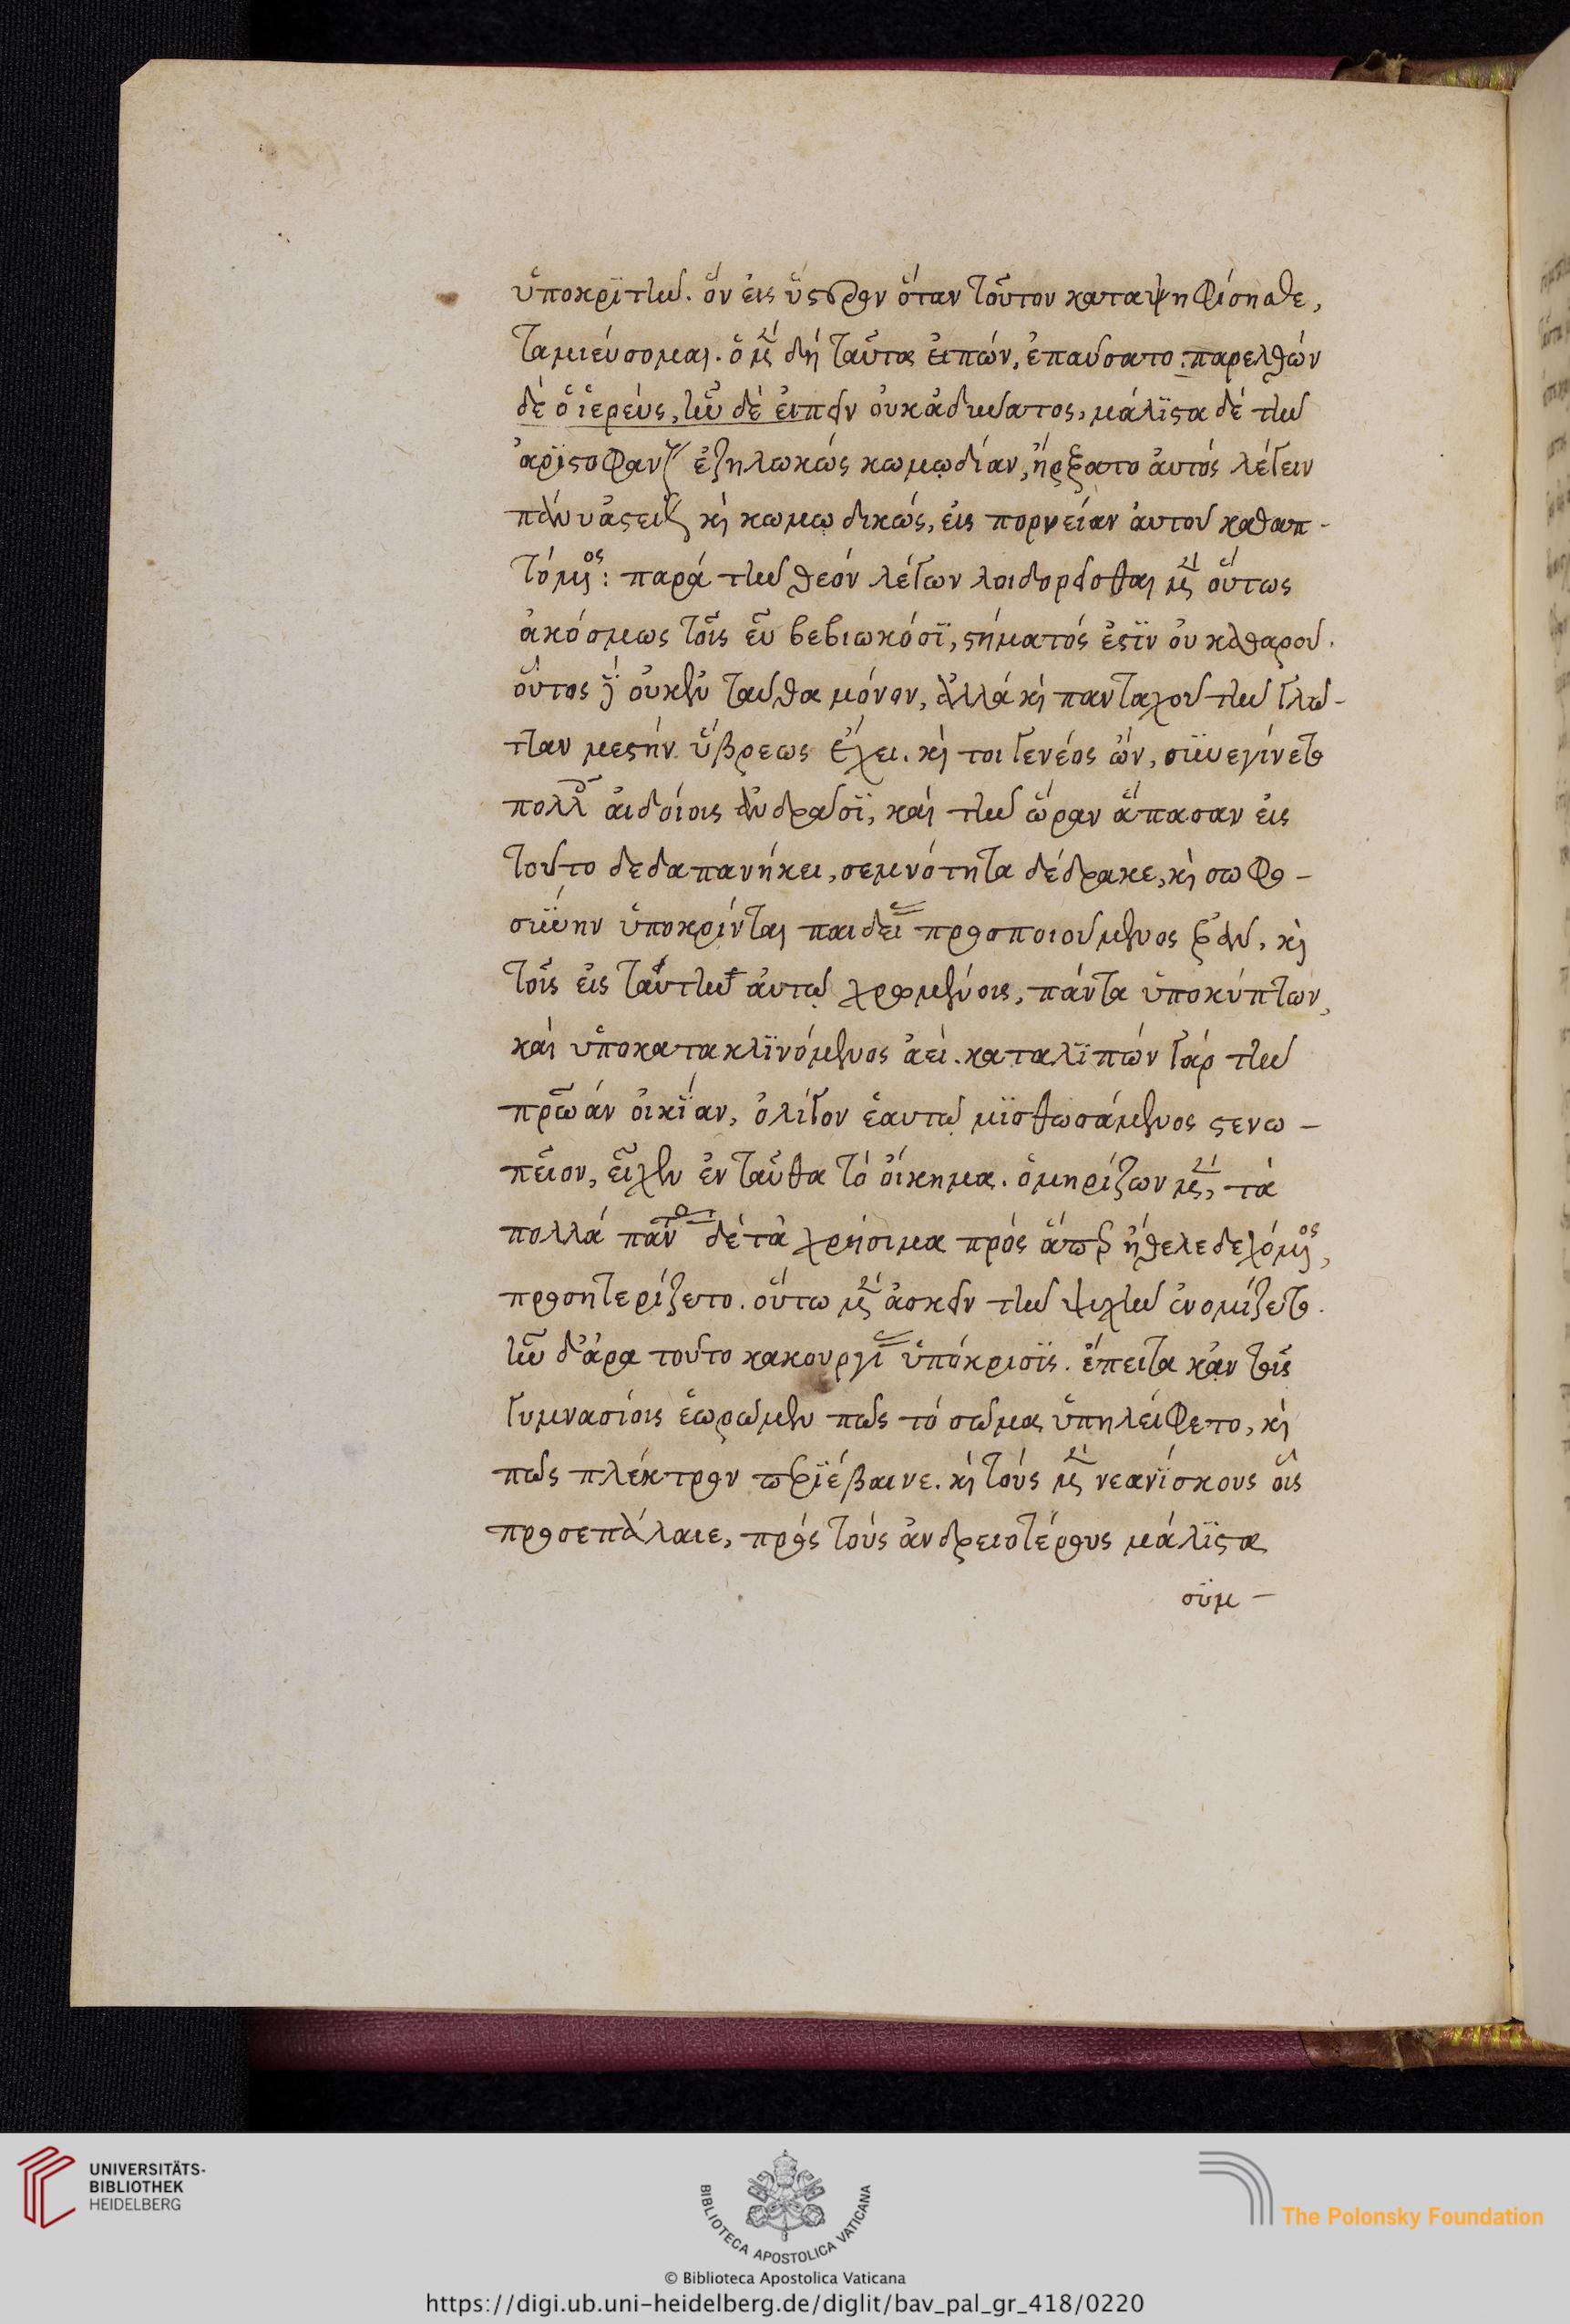 ὑποκριτὴν. ὃν εἰς ὕστερον ὅταν τοῦτον καταψηφίσησθε,
ταμιεύσομαι. ὁ μὲν δὴ ταῦτα εἰπών, ἐπαύσατο: παρελθὼν
δὲ ὁ ἱερεύς, ἦν δὲ εἰπεῖν οὐκ ἀδύνατος, μάλιστα δὲ τὴν
ἀριστοφάνους ἐζηλωκὼς κωμῳδίαν, ἤρξατο αὐτὸς λέγειν
πάνυ ἀστείως καὶ κωμῳδικῶς, εἰς πορνείαν αὐτοῦ καθαπ-
τόμενος: παρὰ τὴν θεὸν λέγων λοιδορεῖσθαι μὲν οὕτως
ἀκόσμως τοῖς εὖ βεβιωκόσι, στόματός ἐστιν οὐ καθαροῦ.
οὗτος δὲ οὐκ ἐνταῦθα μόνον, ἀλλὰ καὶ πανταχοῦ τὴν γλῶ-
τταν μεστὴν ὕβρεως ἔχει. καίτοι γε νέος ὤν, συνεγίνετο
πολλοῖς αἰδοίοις ἀνδράσι, καὶ τὴν ὥραν ἅπασαν εἰς
τοῦτο δεδαπανήκει, σεμνότητα δέδρακε, καὶ σωφρο-
σύνην ὑποκρίνεται παιδείας προσποιούμενος ἐρᾶν, καὶ
τοῖς εἰς ταύτην αὐτῷ χρωμένοις, πάντα ὑποκύπτων,
καὶ ὑποκατακλινόμενος ἀεί. καταλιπὼν γὰρ τὴν
πρῴαν οἰκίαν, ὀλίγον ἑαυτῷ μισθωσάμενος στενω-
πεῖον, εἶχεν ἐνταῦθα τὸ οἴκημα. ὁμηρίζων μὲν, τὰ
πολλὰ πάντας δὲ τὰ χρήσιμα πρὸς ἅπερ ἤθελε δεχόμενος,
προσηταιρίζετο. οὕτω μὲν ἀσκεῖν τὴν ψυχὴν ἐνομίζετο.
ἦν δ' ἄρα τοῦτο κακουργίας ὑπόκρισις. ἔπειτα κἀν τοῖς
γυμνασίοις ἑωρῶμεν πῶς τὸ σῶμα ὑπηλείφετο, καὶ
πῶς πλέκτρον περιέβαινε. καὶ τοὺς μὲν νεανίσκους οἷς
προσεπάλαιε, πρὸς τοὺς ἀνδρειοτέρους μάλιστα
συμ-
UNIVERSITÄTS-
BIBLIOTHEK
HEIDELBERG
BIBLIOTECA APOSTOLICA VATICANA
The Polonsky Foundation
© Biblioteca Apostolica Vaticana
https://digi.ub.uni-heidelberg.de/diglit/bav_pal_gr_418/0220